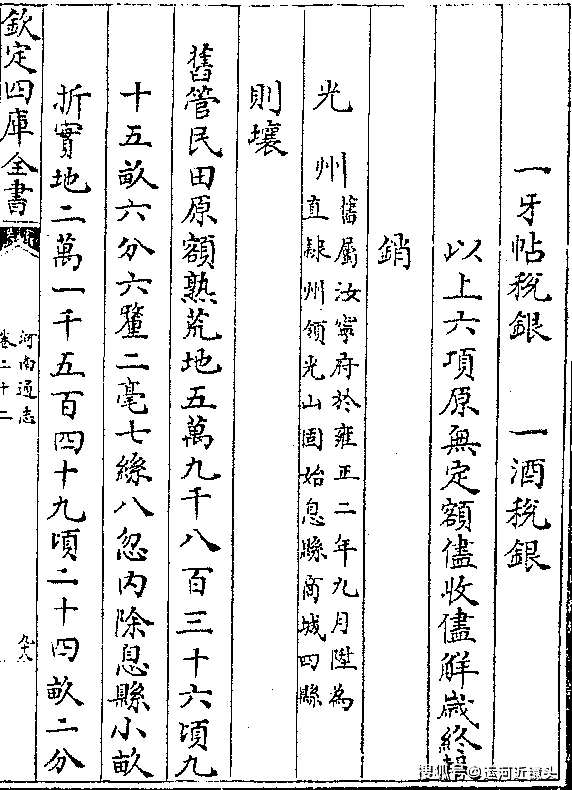 一牙帖稅銀　　一酒稅銀
以上六項原無定額儘收儘解歲終
銷
光　州
舊屬汝寧府於雍正二年九月陞為
直隸州領光山固始息縣商城四縣
則壤
舊管民田原額熟荒地五萬九千八百三十六頃九
十五畝六分六釐二毫七絲八忽內除息縣小畝
折實地二萬一千五百四十九頃二十四畝二分
欽定四庫全書
河南通志
卷二十二
搜狐号@运河近镜头